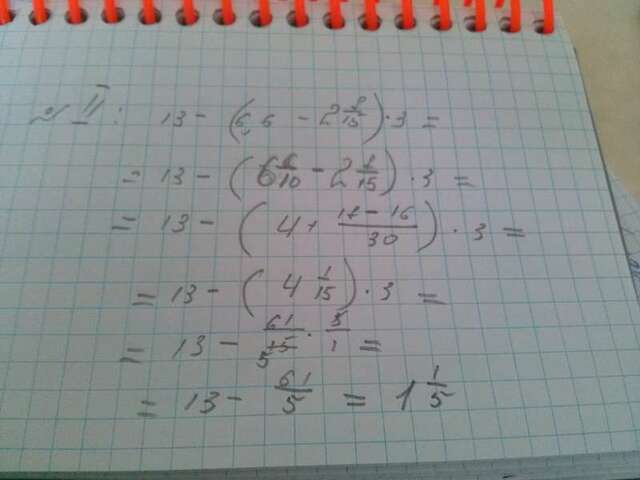 II: 13 - (6,6 - 2 8/15) · 3 =
= 13 - (6 6/10 - 2 8/15) · 3 =
= 13 - (4 + 18 - 16/30) · 3 =
= 13 - (4 1/15) · 3 =
= 13 - 61/15 5 · 3/1 =
= 13 - 61/5 = 1 1/5